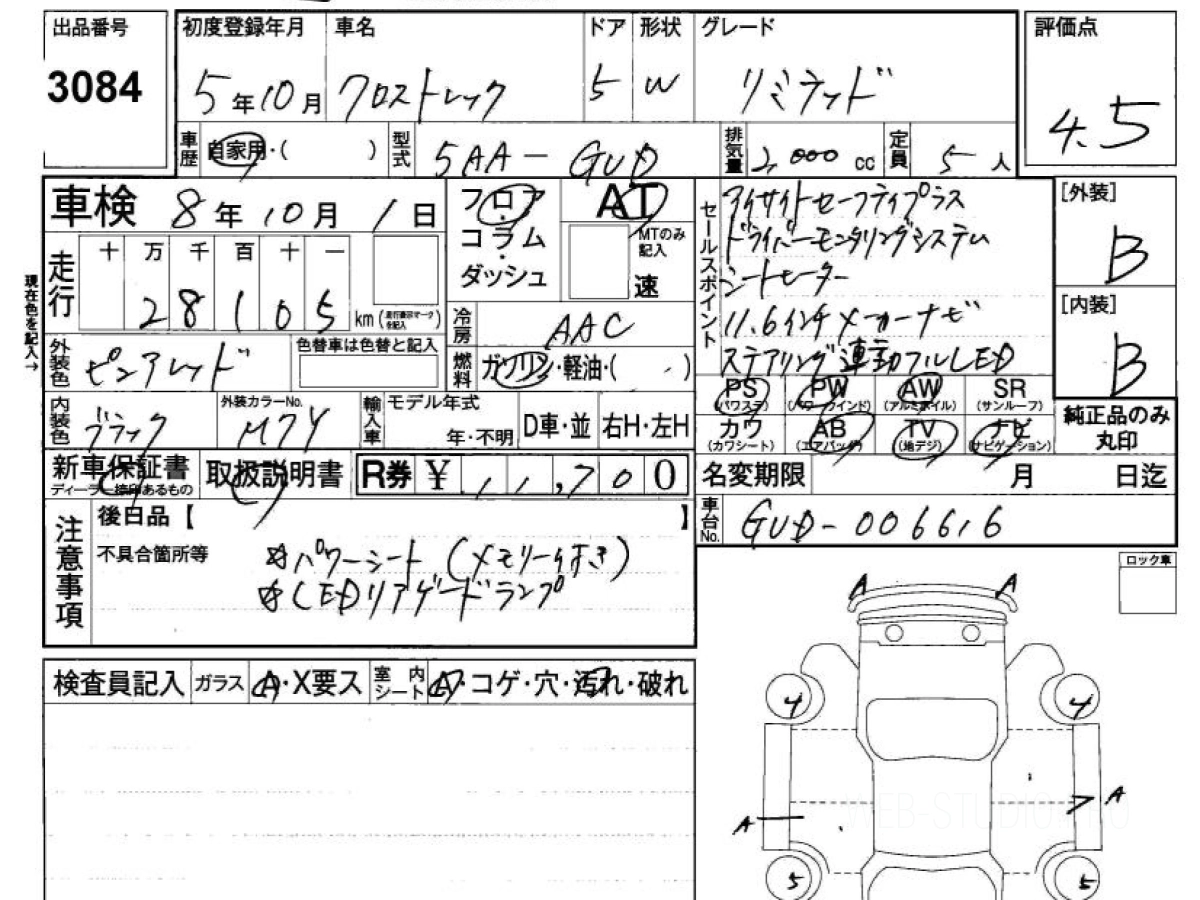 出品番号
3084
初度登録年月
5年10月
車名
クロストレック
ドア
5
形状
W
グレード
リミテッド
評価点
4.5
車歴
自家用・( )
型式
5AA-GUD
排気量
2,000 cc
定員
5人
車検 8年10月1日
フロア
コラム
ダッシュ
AT
MTのみ記入
速
セールスポイント
アイサイトセーフティプラス
ドライバーモニタリングシステム
シートヒーター
11.6インチメーカーナビ
ステアリング連動フルLED
[外装]
B
[内装]
B
現在色を記入→
走行
十 万 千 百 十 一
28105
km(走行表示マークを記入)
冷房
AAC
燃料
ガソリン・軽油・( )
外装色
ピュアレッド
色替車は色替と記入
PS
(パワステ)
PW
(パワーウインド)
AW
(アルミホイル)
SR
(サンルーフ)
カワ
(カワシート)
AB
(エアバッグ)
TV
(地デジ)
ナビ
(ナビゲーション)
純正品のみ
丸印
内装色
ブラック
外装カラーNo.
M7Y
輸入車
モデル年式
年・不明
D車・並
右H・左H
新車保証書
ディーラー捺印あるもの
取扱説明書
R券 ¥ 11,700
名変期限 月 日迄
車台No.
GUD-006616
注意事項
後日品【 】
不具合箇所等
※パワーシート(メモリー付き)
※LEDリアゲートランプ
ロック車
検査員記入
ガラス
A・X要ス
室内
シート
A・コゲ・穴・汚れ・破れ
A A
4 4
A A
5 5
WEB-STUDIO1.0